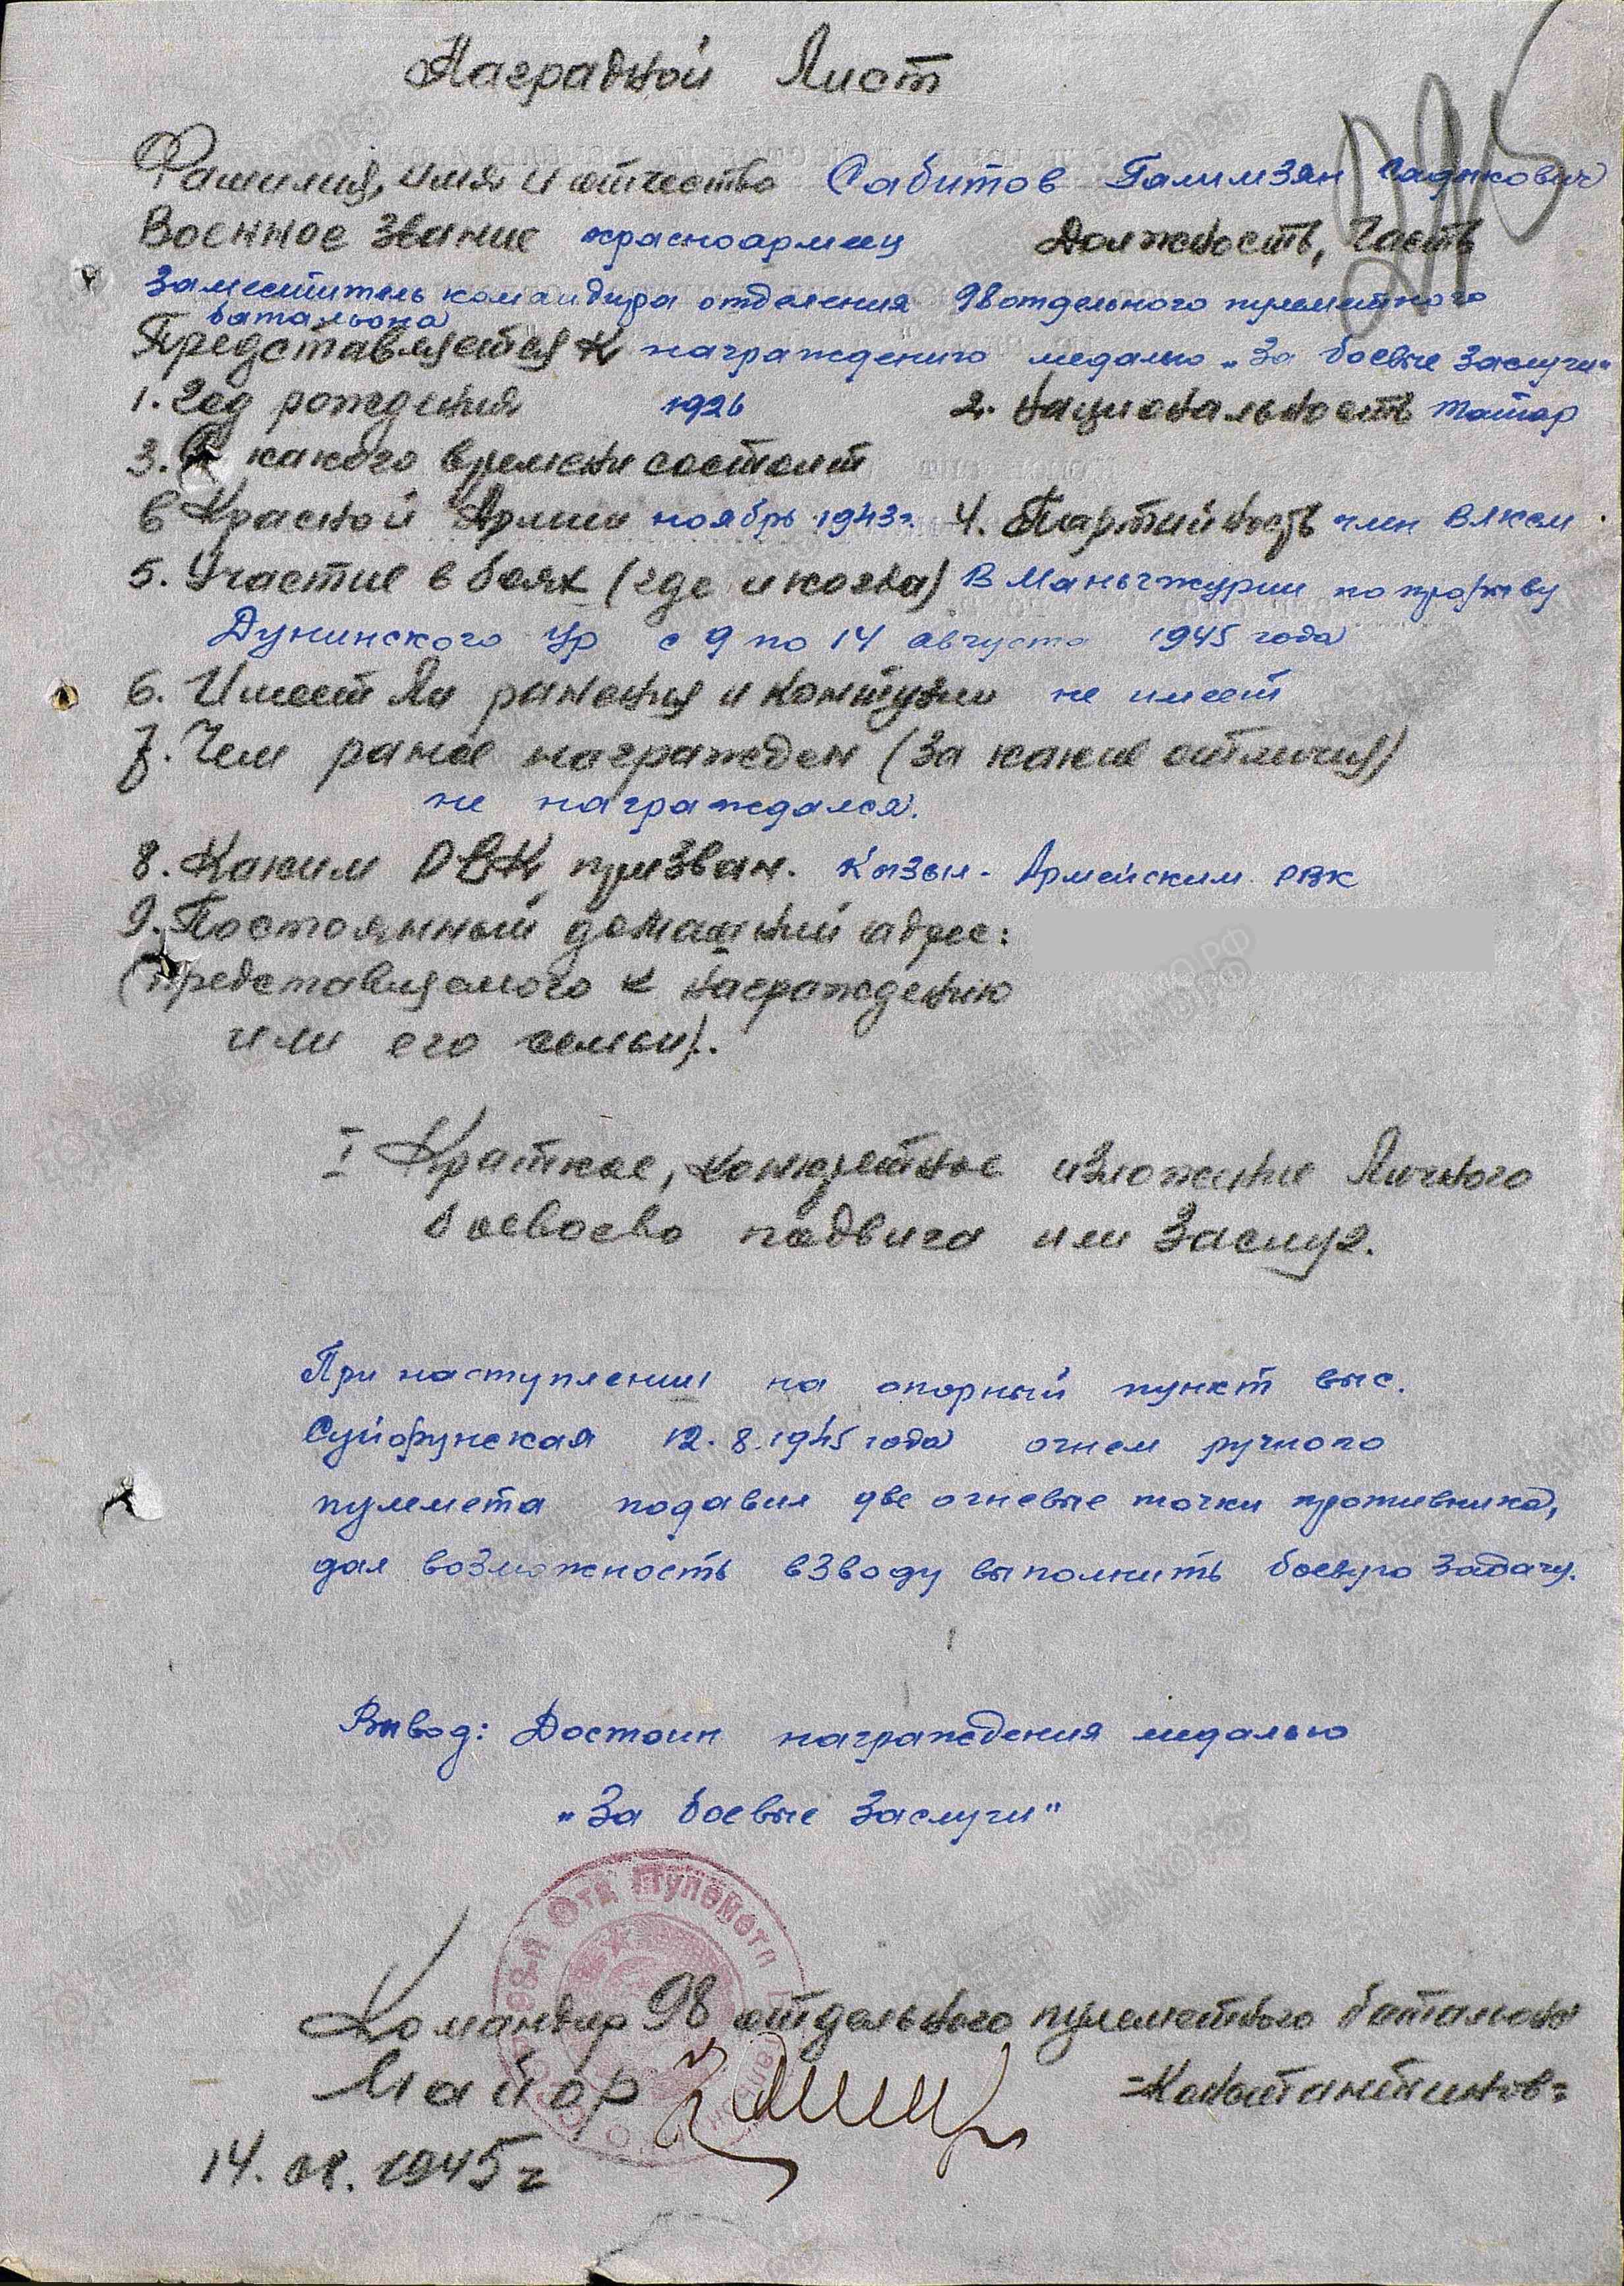 Наградной Лист
Фамилия, имя и отчество Сабитов Галимзян Садыкович
Военное звание красноармеец Должность, Часть
Заместитель командира отделения 98 отдельного пулеметного
батальона
Представляется к награждению медалью „За боевые заслуги"
1. Год рождения 1926 2. Национальность татар
3. С какого времени состоит
в Красной Армии ноябрь 1943г. 4. Партийность член ВЛКСМ
5. Участие в боях (где и когда) В Маньчжурии по прорыву
Дунинского УР с 9 по 14 августа 1945 года
6. Имеет ли ранения и контузии не имеет
7. Чем ранее награжден (за какие отличия)
не награждался.
8. Каким РВК призван. Кызыл-Армейским РВК
9. Постоянный домашний адрес:
(представляемого к награждению
или его семьи).
I Краткое, конкретное изложение Личного
боевоево подвига или Заслуг.
При наступлении на опорный пункт выс.
Суйфунская 12.8.1945 года огнем ручного
пулемета подавил две огневые точки противника,
дал возможность взводу выполнить боевую задачу.
Вывод: Достоин награждения медалью
„За боевые Заслуги"
98-й Отд Пулеметн
Командир 98 отдельного пулеметного батальона
Майор =Константинов=
14. 08. 1945 г